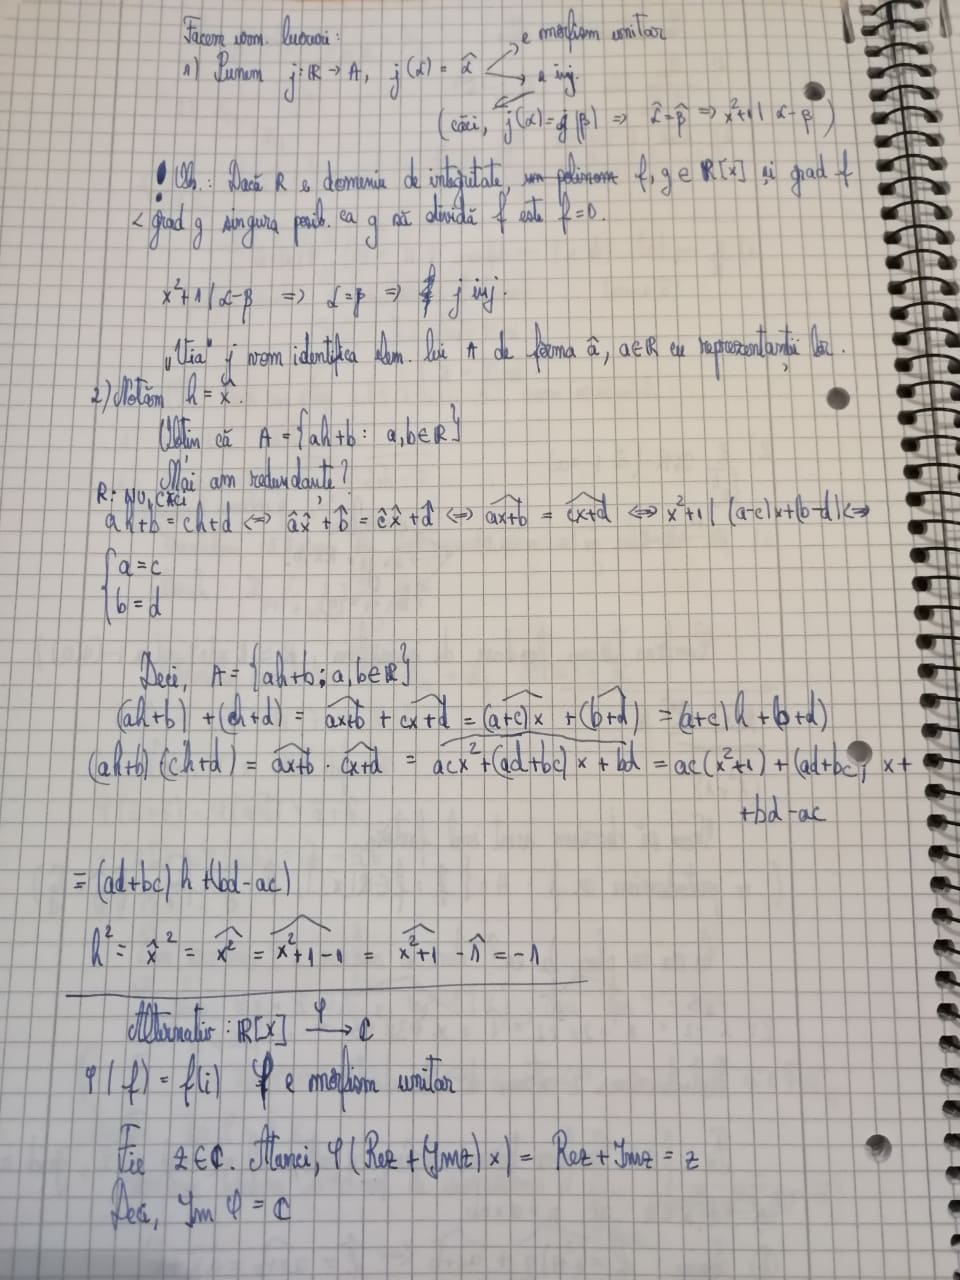 Facem vom. lucruri:
e morfism unitar
1) Punem j: ℝ → A, j(α) = α̂
e inj.
(căci, j(α) = j(β) ⇒ α̂ = β̂ ⇒ x²+1 | α-β)
! Obs.: Dacă R e domeniu de integritate, f, g ∈ R[x] și grad f
< grad g singura posib. ca g să dividă f este f = 0.
x²+1 | α-β ⇒ α = β ⇒ j inj.
„Via" j vom identifica elem. lui A de forma â, a ∈ ℝ cu reprezentanții lor.
2) Notăm h = x̂.
Obțin că A = {ah+b : a, b ∈ ℝ}
Mai am redundanțe?
R: NU, CĂCI
ah+b = ch+d ⇔ âx̂ + b̂ = ĉx̂ + d̂ ⇔ \widehat{ax+b} = \widehat{cx+d} ⇔ x²+1 | (a-c)x+(b-d) ⇔
{ a = c
{ b = d
Deci, A = {ah+b ; a, b ∈ ℝ}
(ah+b) + (ch+d) = \widehat{ax+b} + \widehat{cx+d} = \widehat{(a+c)x} + \widehat{(b+d)} = (a+c)h + (b+d)
(ah+b)(ch+d) = \widehat{ax+b} · \widehat{cx+d} = \widehat{acx²+(ad+bc)x+bd} = ac(x²+1) + (ad+bc) x +
+bd-ac
= (ad+bc)h + (bd-ac)
h² = x̂² = \widehat{x²} = \widehat{x²+1-1} = \widehat{x²+1} - 1̂ = -1
Alternativ: ℝ[x] →^φ ℂ
φ(f) = f(i) φ e morfism unitar
Fie z ∈ ℂ. Atunci, φ(Rez + (Imz)x) = Rez + Imz = z
Deci, Im φ = ℂ